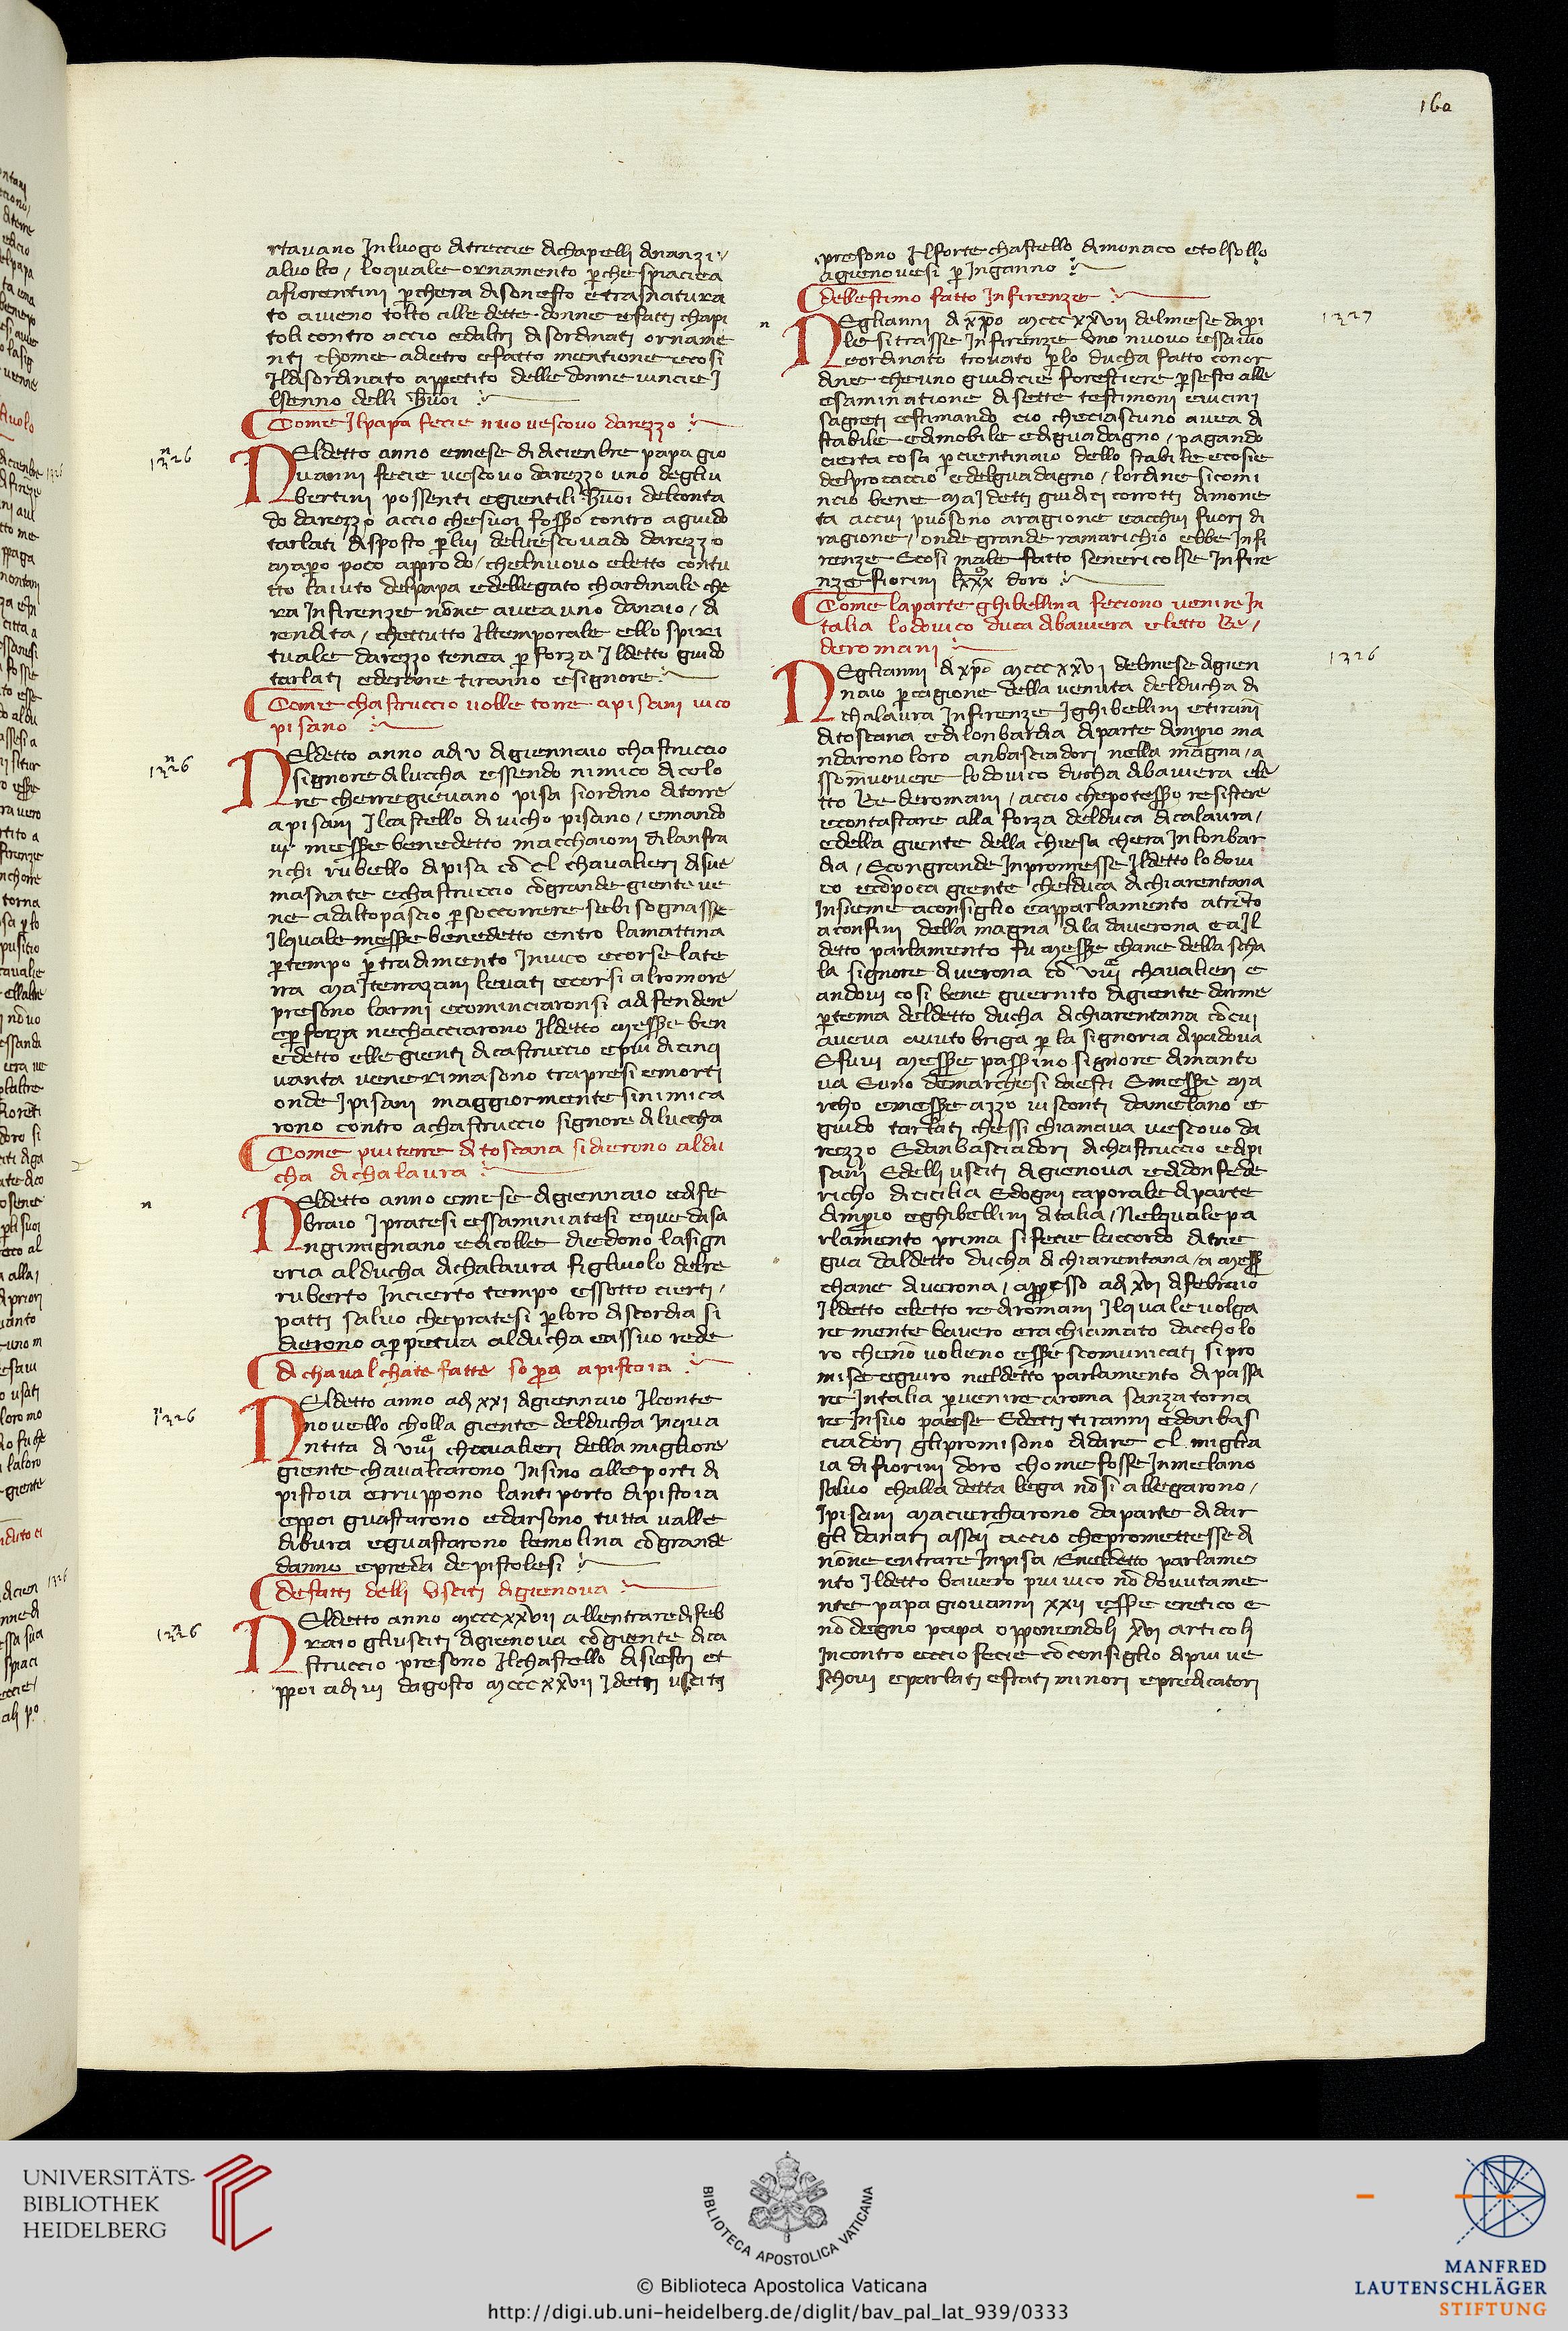 160
rtavano Inluogo ditreccie dichapelli dinanzi /
alvolto / loquale ornamento perche spiaciea
afiorentini perchera disonesto etrasnatura
to aveno tolto alle dette donne efatti chapi
toli contro accio edaltri disordinati orname
nti chome adietro efatto mentione ecosi
Ildisordinato appetito delle donne vincie I
lsenno delli huoi
Come Ilpapa fecie nuo vescovo darezzo
1326
Neldetto anno emese di dicienbre papa gio
vanni fecie vescovo darezzo uno degliu
bertini possenti egientili huoi delconta
do darezzo accio chesuoi fosso contro aguido
tarlati disposto per lui delvescovado darezzo
mapero poco approdo / chelnuovo eletto contu
tto laiuto delpapa edellegato chardinale che
ra Infirenze none avea uno danaio / di
rendita / chettutto Iltemporale ello spiri
tuale darezzo tenea per forza Ildetto guido
tarlati ederane tiranno esignore
Come chastruccio volle torre apisani vico
pisano
1326
Neldetto anno adi v digiennaio chastruccio
signore diluccha essendo nimico dicolo
ro cherregievano pisa siordino ditorre
apisani Ilcastello di vicho pisano / emando
vi messe benedetto macchaioni dilanfra
nchi rubello dipisa co cl chavalieri disue
masnate echastruccio cogrande giente ve
ne adaltopascio per soccorrere sebisognasse
Ilquale messe benedetto entro lamattina
pertempo per tradimento Invico ecorse late
rra maIterrazani levati ecorsi alromore
presono larmi ecominciaronsi adifendere
eper forza nechacciarono Ildetto messe ben
edetto elle gienti dicastruccio epiu dicinq
uanta venerimasono trapresi emorti
onde Ipisani maggiormente sinimica
rono contro achastruccio signore diluccha
Come piu terre ditoscana sidierono aldu
cha dichalaura
n
Neldetto anno emese digiennaio edife
braio Ipratesi essaminiatesi eque dasa
ngimignano edicolle diedono lasign
oria alducha dichalaura figliuolo delre
ruberto Incierto tempo essotto cierti /
patti salvo chepratesi perloro discordia si
dierono apperpetua alducha eassuo rede
di chavalchate fatte sopra apistoia
1326
Neldetto anno adi xxi digiennaio Ilconte
novello cholla giente delducha Inqua
ntita di viii chavalieri della migliore
giente chavalcarono Insino alle porti di
pistoia erruppono lantiporto dipistoia
eppoi guastarono edarsono tutta valle
dibura eguastarono lemolina cogrande
danno epreda depistolesi
defatti delli Usciti digienova
1326
Neldetto anno mcccxxvii allentrare difeb
raio gliusciti digienova cogiente dica
struccio presono Ilchastello disiestri et
ppoi adi iii dagosto mcccxxvii Idetti usciti
presono Ilforte chastello dimonaco etolsollo
agienovesi per Inganno
dellestimo fatto Infirenze
n
1327
Neglianni di xpo mcccxxvii delmese dapri
le sitrasse Infirenze Uno nuovo essavio
eordinato trovato per lo ducha fatto conor
dine cheuno giudicie forestiere persesto alle
esaminatione disette testimoni evicini
sagreti estimando cio checiascuno avea di
stabile edimobile ediguadagno / pagando
cierta cosa percientinaio dello stabile ecosie
delprocaccio edelguadagno / lordine sicomi
ncio bene maIdetti giudici corrotti dimone
ta accui puosono aragione eacchui fuori di
ragione / onde grande ramarichio ebbe Infi
renze Ecosi male fatto senericolse Infire
nze fiorini lxxx doro
Come laparte ghibellina feciono venire In
talia lodovico duca dibaviera eletto Re /
deromani
1326
Neglianni di xpo mcccxxvi delmese digien
naio percagione della venuta delducha di
chalaura Infirenze Ighibellini etirani
ditoscana edilonbardia diparte dinperio ma
ndarono loro anbasciadori nella magna / a
ssomuovere lodovico ducha dibaviera ele
tto Re deromani / accio chepotesso resistere
econtastare alla forza delduca dicalaura /
edella giente della chiesa chera Inlonbar
dia / Econgrande Inpromesse Ildetto lodovi
co ecopoca giente chelduca dichiarentana
Insieme aconsiglio eapparlamento atreto
aconfini della magna dila daverona eaIl
detto parlamento fu messe chane della scha
la signore diverona co viii chavalieri e
andovi cosi bene guernito digiente darme
pertema deldetto ducha dichiarentana cocui
aveva avuto briga per la signoria dipadova
Efuvi messe passino signore dimanto
va Euno demarchesi daesti Emesse ma
rcho emesse azzo visconti damelano et
guido tarlati chessi chiamava vescovo da
rezzo Edanbasciadori dichastruccio edipi
sani Edelli usciti digienova edidonfede
richo dicicilia Edogni caporale diparte
dinperio eghibellini ditalia / Nelquale pa
rlamento prima sifecie laccordo ditrie
gua daldetto ducha dichiarentana / a mess
chane diverona / appresso adi xvi difebraio
Ildetto eletto rediromani Ilquale volga
remente bavero era chiamato daccholo
ro cheno volieno esse scomunicati sipro
mise egiuro neldetto parlamento dipassa
re Intalia pervenire aroma sanza torna
re Insuo paese Edetti tiranni edanbas
ciadori glipromisono didare cl miglia
ia di fiorini doro chome fosse Inmelano
salvo challa detta lega nosi allegarono /
Ipisani maciercharono daparte didar
gli danari assai accio chepromettesse di
none entrare Inpisa / Eneldetto parlame
nto Ildetto bavero piuvico nodovutame
nte papa giovanni xxii esse eretico e
nodegno papa opponendoli xvi articoli
Incontro eccio fecie coconsiglio dipiu ve
schovi eparlati efrati minori epredicatori
UNIVERSITÄTS-
BIBLIOTHEK
HEIDELBERG
BIBLIOTECA APOSTOLICA VATICANA
© Biblioteca Apostolica Vaticana
http://digi.ub.uni-heidelberg.de/diglit/bav_pal_lat_939/0333
MANFRED
LAUTENSCHLÄGER
STIFTUNG